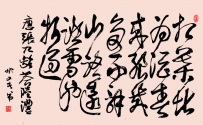 松葉堪
為酒春
来釀幾
多不辭
山路遠
踏雪也
相過
唐張九齡答陸澧